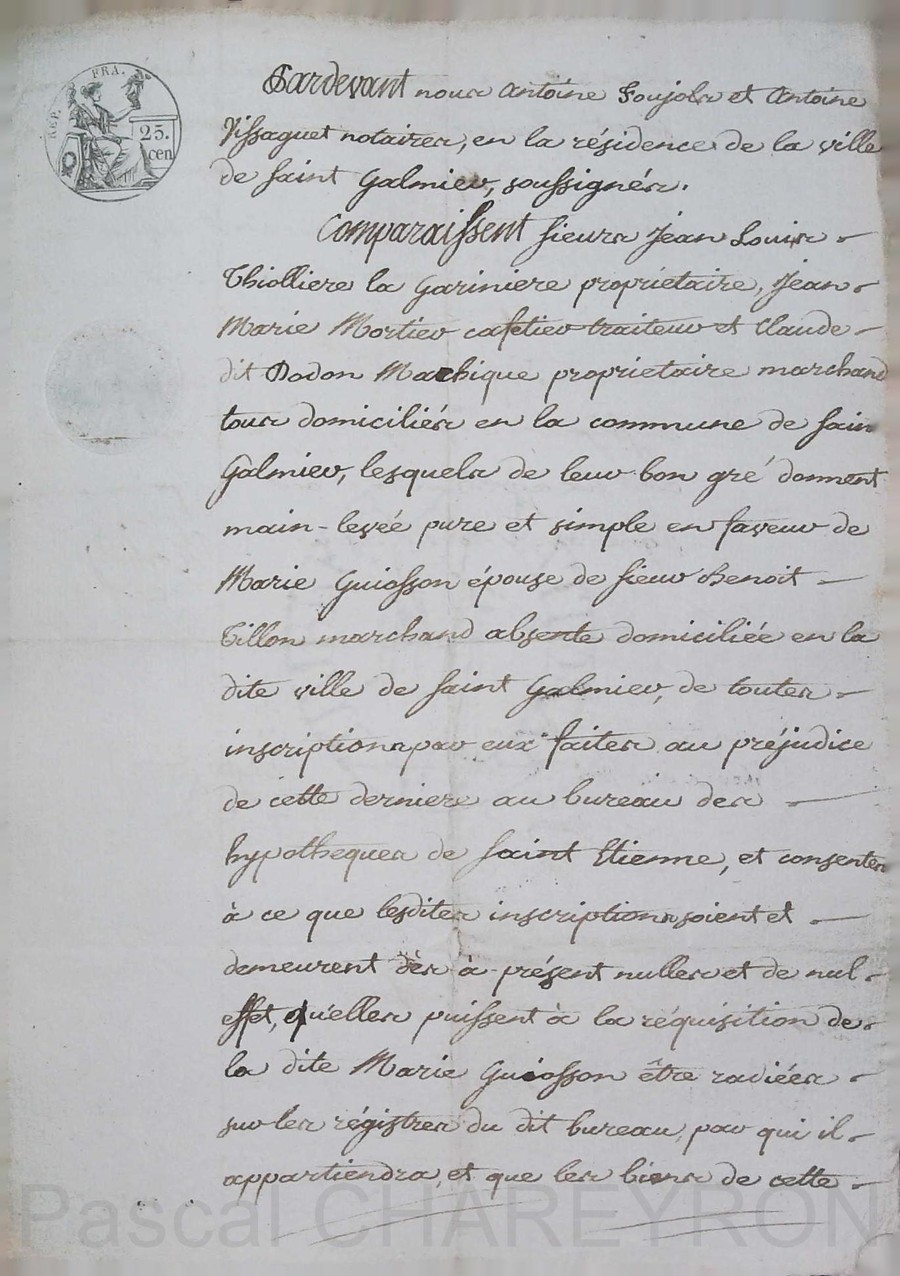 REP. FRA.
25.
cen
Pardevant nous Antoine Soujols et Antoine
Vissaguet notaires, en la résidence de la ville
de saint Galmier, soussignés.
Comparaissent sieurs Jean Louis
Thiolliere la Gariniere propriétaire, Jean
Marie Mortier cafetier traiteur et Claude
dit Dodon Machique propriétaire marchand
tous domiciliés en la commune de sain
Galmier, lesquels de leur bon gré donnent
main-levée pure et simple en faveur de
Marie Guiosson épouse de sieur Benoit
Tillon marchand absente domiciliée en la
dite ville de saint Galmier, de toutes
inscriptions par eux faites au préjudice
de cette derniere au bureau des
hypotheques de saint Etienne, et consentes
à ce que lesdites inscriptions soient et
demeurent dès à présent nulles et de nul
effet, qu'elles puissent à la réquisition de
la dite Marie Guiosson être radiées
sur les régistres du dit bureau, par qui il
appartiendra, et que les biens de cette
Pascal CHAREYRON